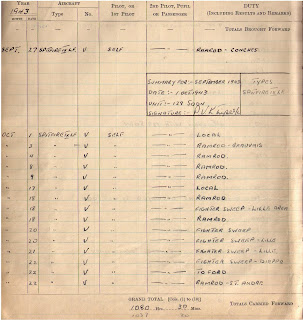 YEAR AIRCRAFT PILOT, OR 1ST PILOT 2ND PILOT, PUPIL OR PASSENGER DUTY (INCLUDING RESULTS AND REMARKS)
1943 Type No.
TOTALS BROUGHT FORWARD
SEPT. 27 SPITFIRE V SELF RAMROD - CONCHES
SUMMARY FOR:- SEPTEMBER 1943 TYPES
DATE:- 1 OCT 1943 SPITFIRE
UNIT:- 129 SQDN
SIGNATURE:-
OCT 1 SPITFIRE V SELF LOCAL
V RAMROD - BEAUVAIS
V RAMROD
V RAMROD
9 V RAMROD
V LOCAL
V RAMROD
18 V FIGHTER SWEEP - LILLE AREA
18 V RAMROD
20 V FIGHTER SWEEP
20 V FIGHTER SWEEP
21 V FIGHTER SWEEP - LILLE
V FIGHTER SWEEP - DIEPPE
22 V TO FORD
22 V RAMROD - ST. ANDRE
GRAND TOTAL [Cols. (1) to (10)]
1080 Hrs. Mins.
TOTALS CARRIED FORWARD